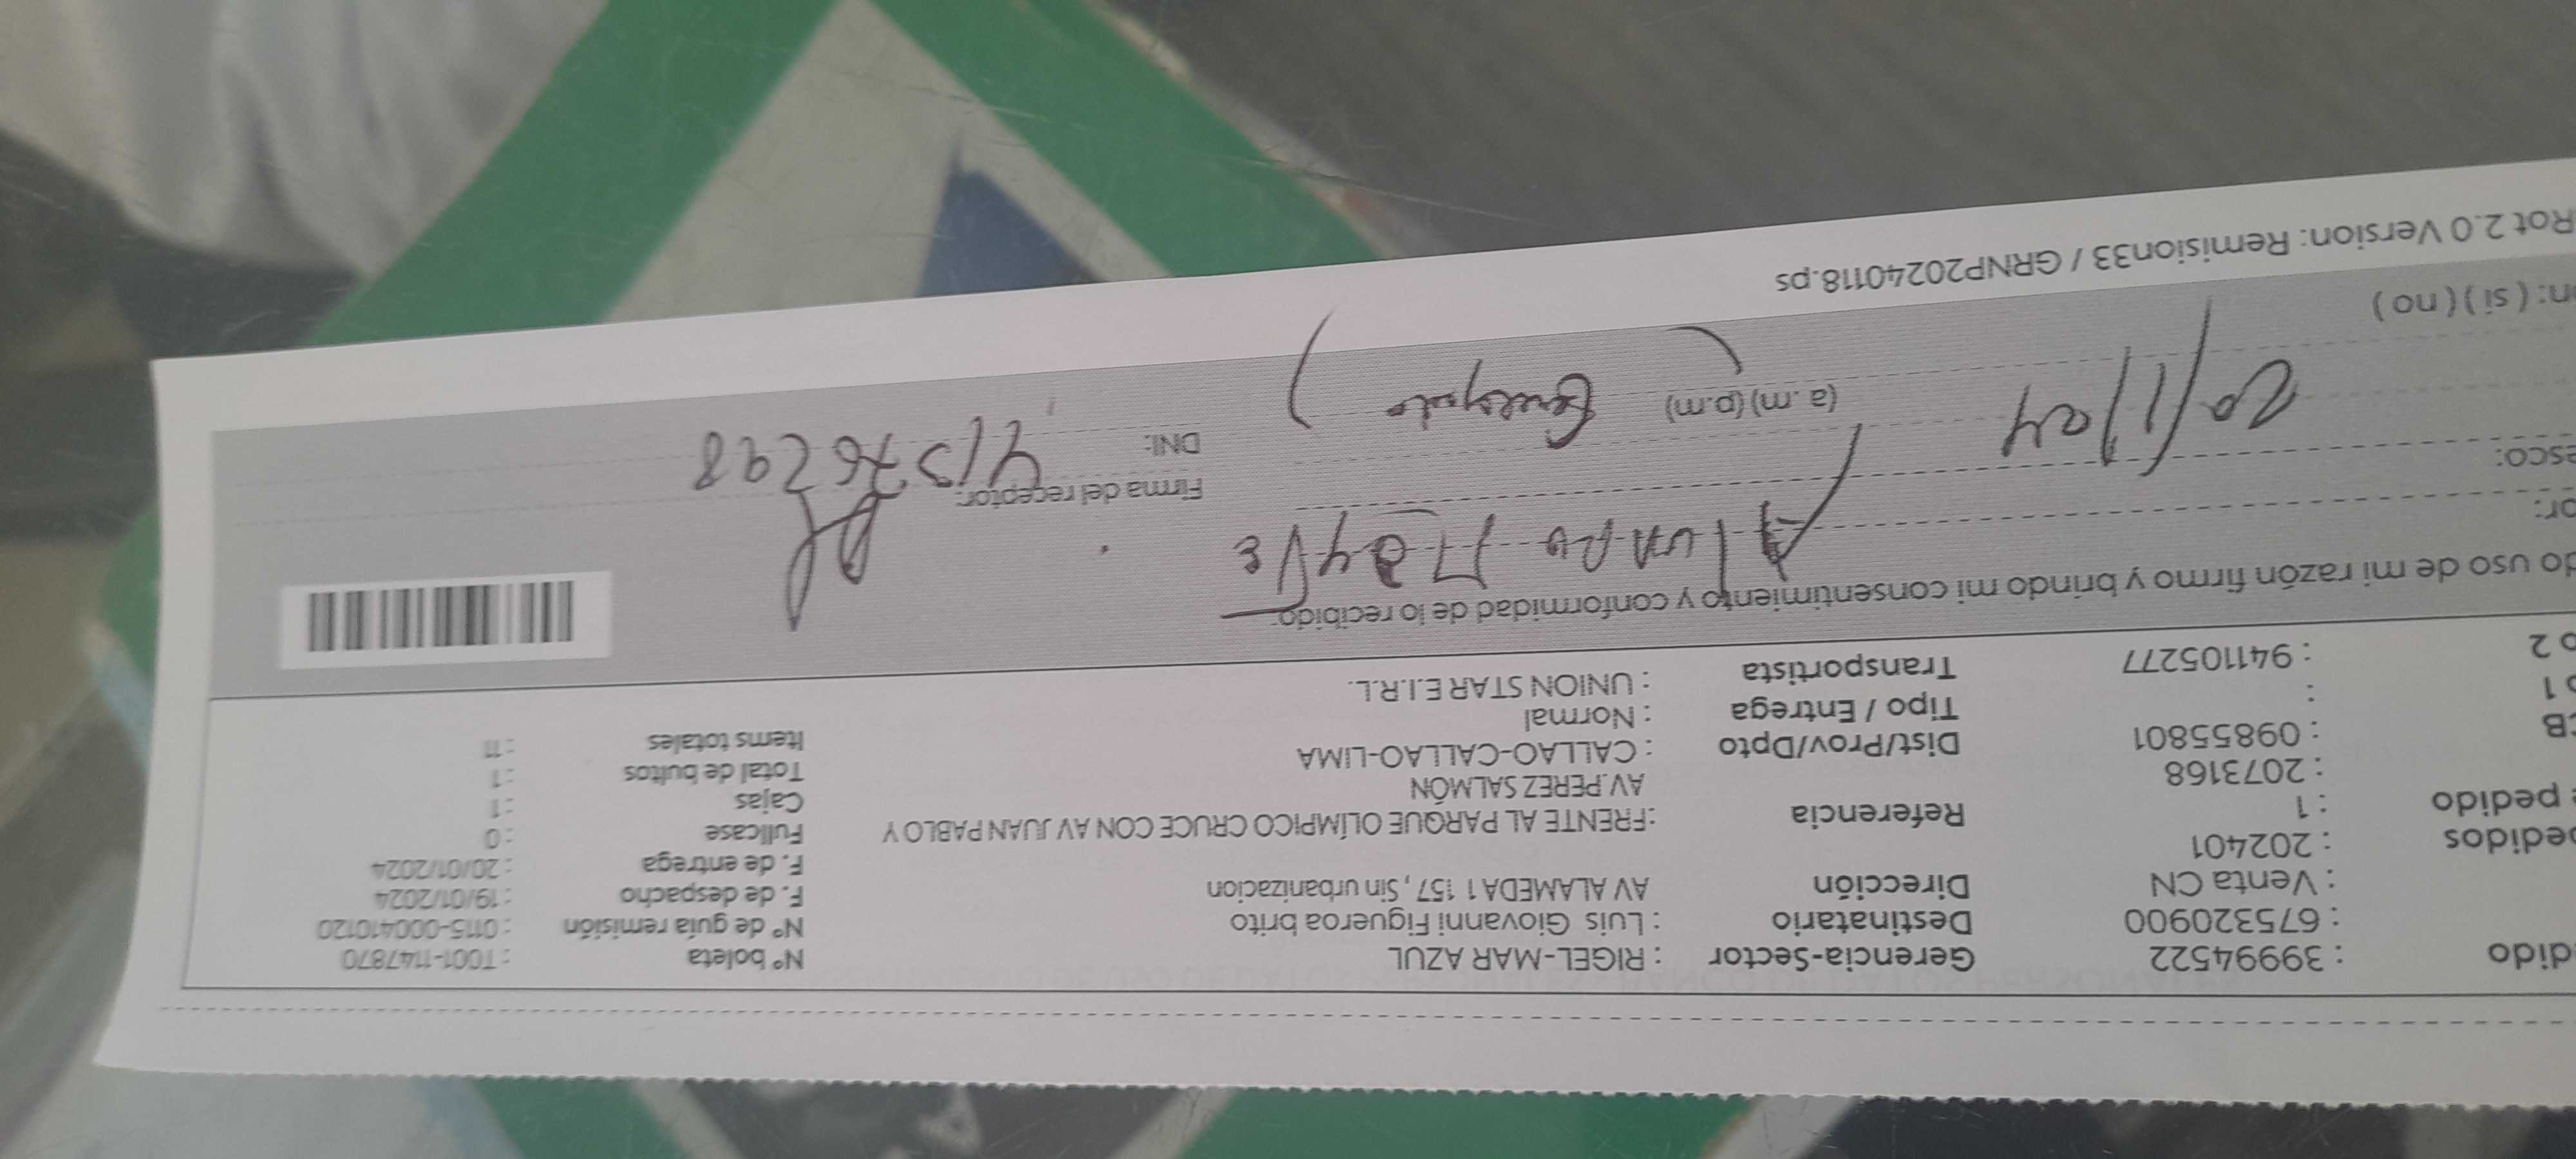 dido : 39994522 Gerencia-Sector : RIGEL-MAR AZUL Nº boleta : T001-1147870
: 675320900 Destinatario : Luis Giovanni Figueroa brito Nº de guía remisión : 0115-000410120
: Venta CN Dirección AV ALAMEDA 1 157, Sin urbanizacion F. de despacho : 19/01/2024
pedidos : 202401 F. de entrega : 20/01/2024
pedido : 1 Referencia :FRENTE AL PARQUE OLÍMPICO CRUCE CON AV JUAN PABLO Y Fullcase : 0
: 2073168 AV. PEREZ SALMÓN Cajas : 1
CB : 09855801 Dist/Prov/Dpto : CALLAO-CALLAO-LIMA Total de bultos : 1
o 1 : Tipo / Entrega : Normal Items totales : 11
o 2 : 941105277 Transportista : UNION STAR E.I.R.L.
do uso de mi razón firmo y brindo mi consentimiento y conformidad de lo recibido.
or:
esco: Firma del receptor:
20/1/24 (a.m)(p.m) DNI: 41376298
on: ( si ) ( no )
Rot 2.0 Version: Remision33 / GRNP20240118.ps